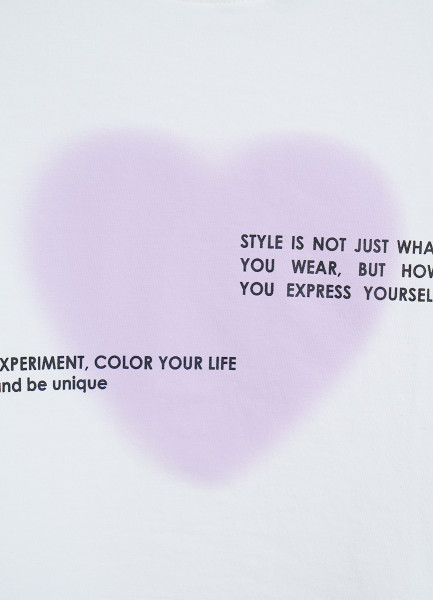 STYLE IS NOT JUST WHA
YOU WEAR, BUT HOW
YOU EXPRESS YOURSEL
XPERIMENT, COLOR YOUR LIFE
and be unique